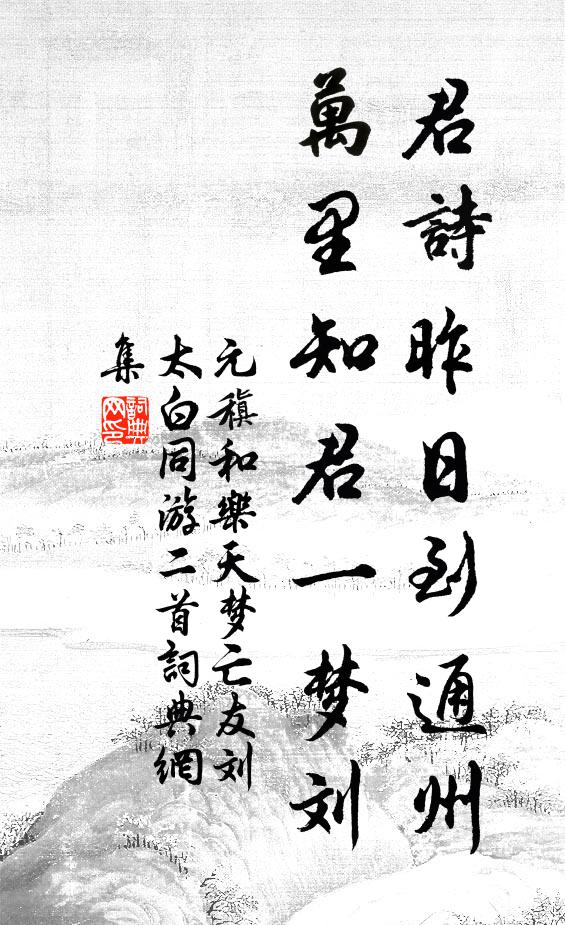 君詩昨日到通州
萬里知君一梦刘
元稹和樂天梦亡友刘
太白同游二首詞典網
集
詞典
网印